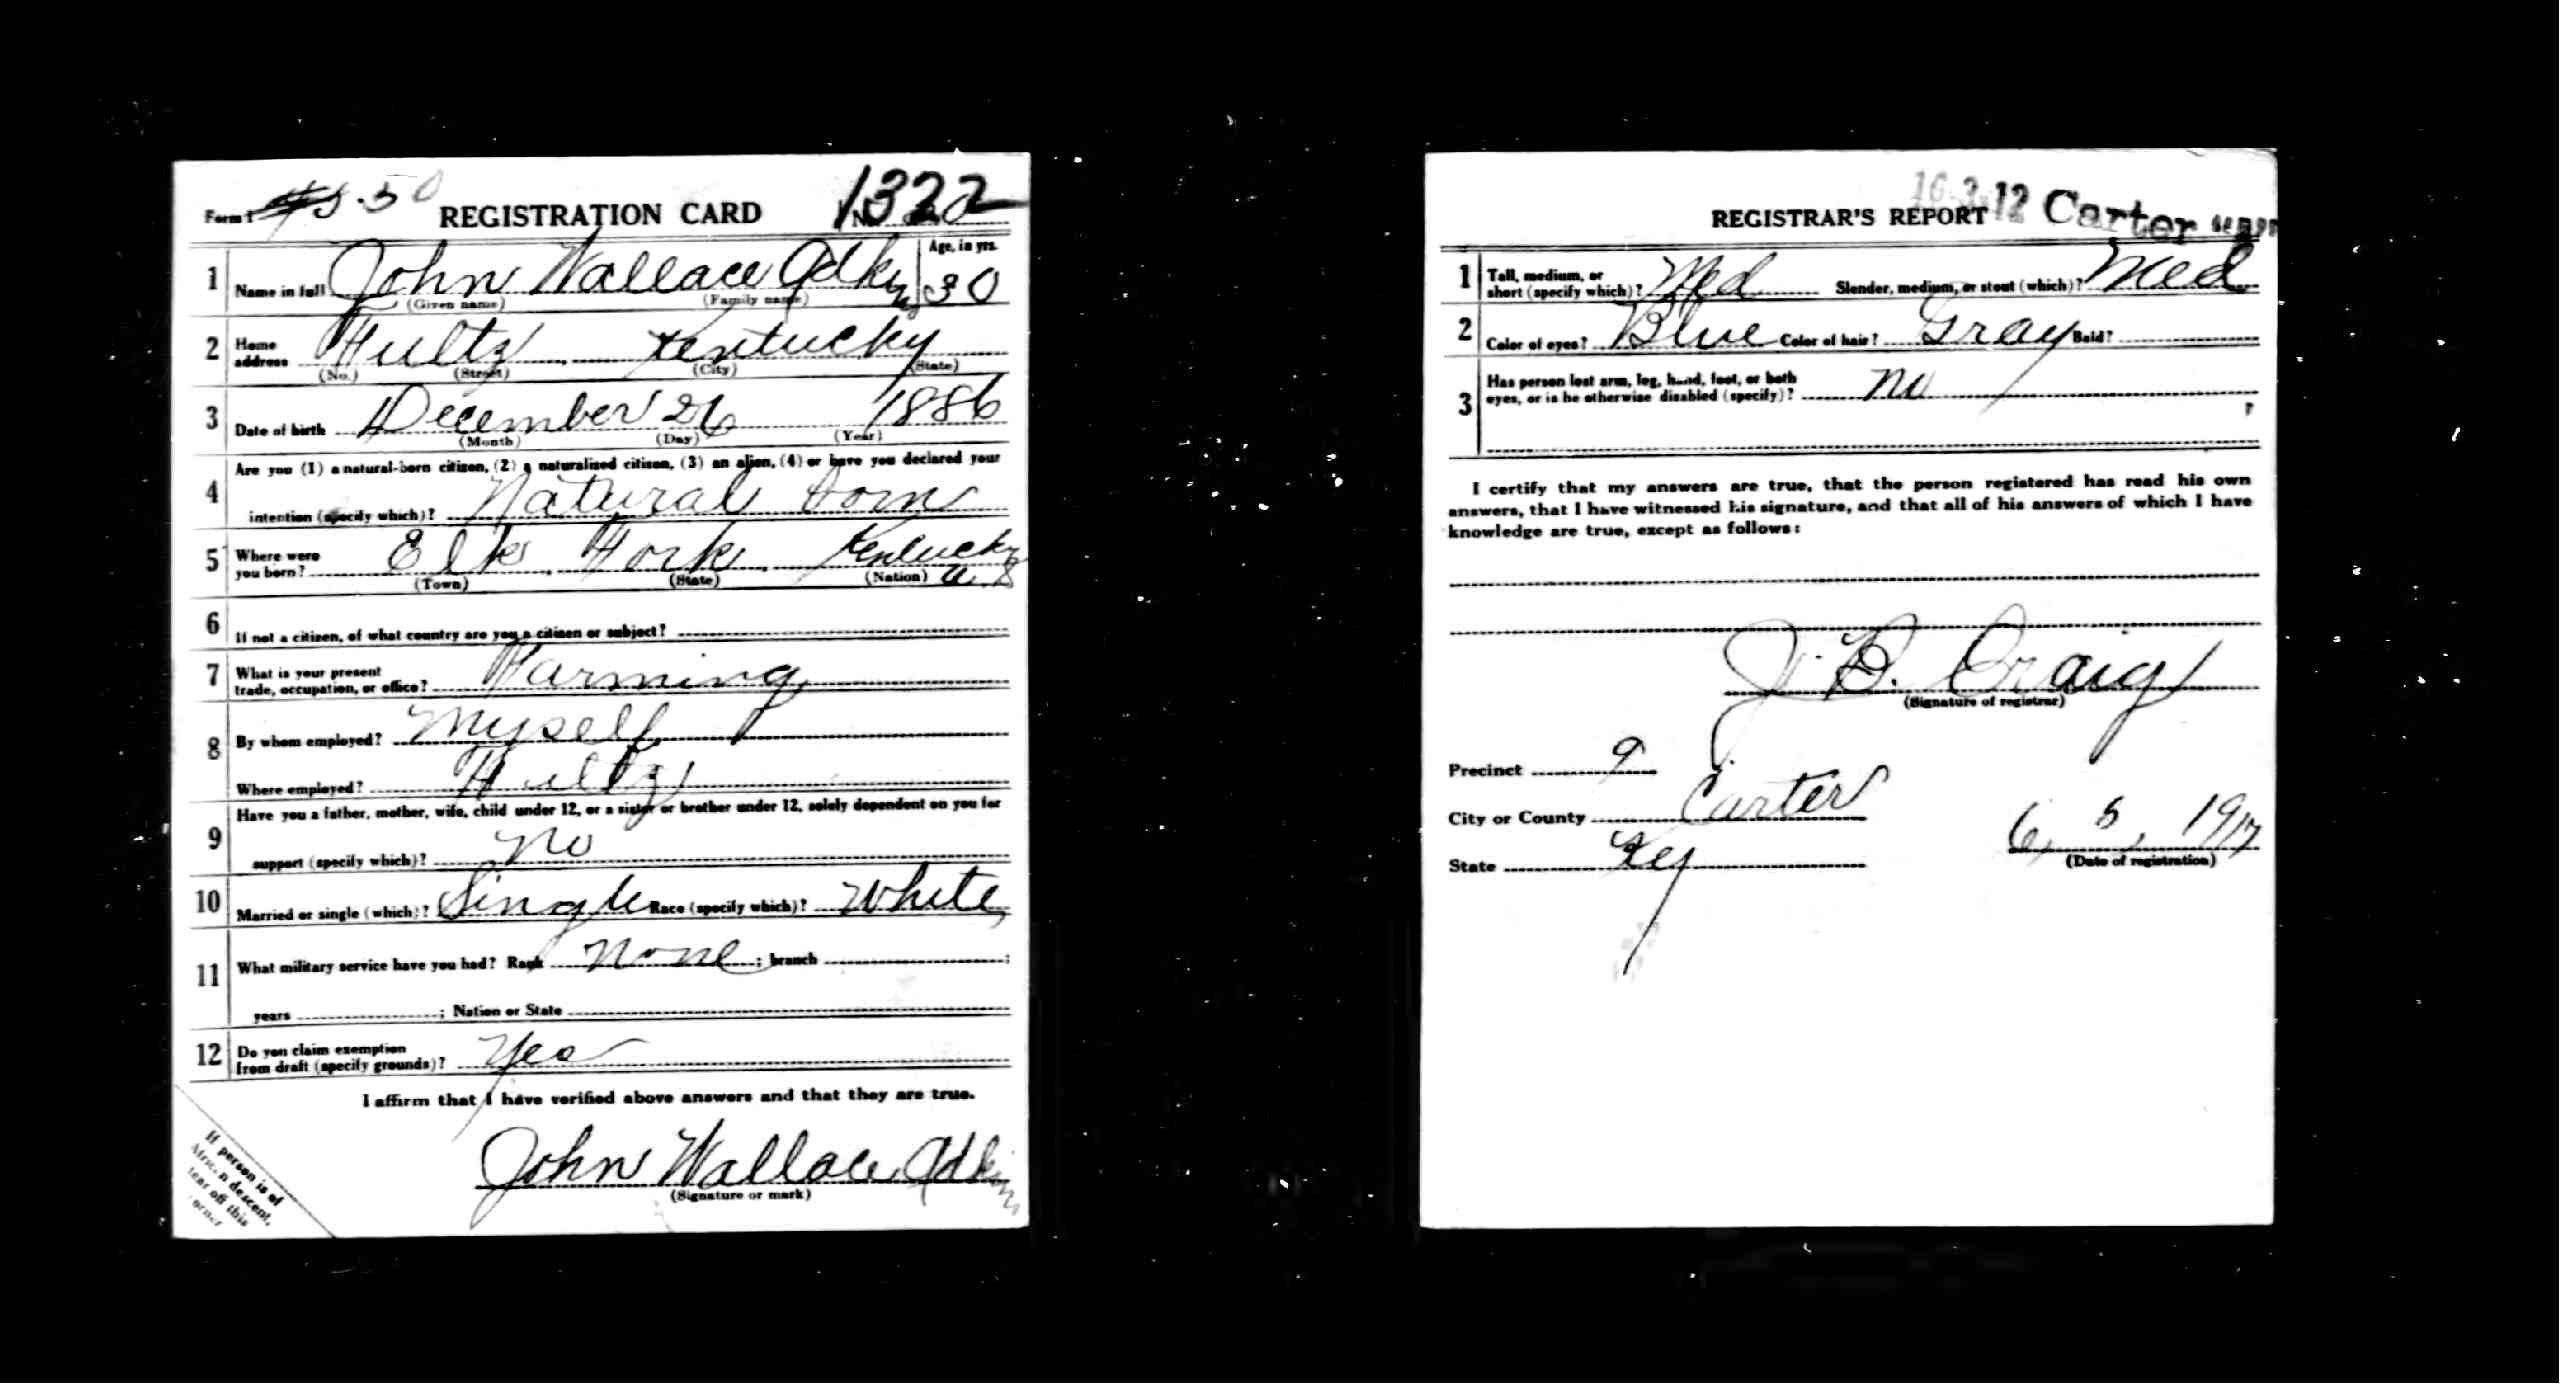 Form 1 REGISTRATION CARD 1322 No.
1 Name in full John Wallace Adkins Age, in yrs. 30
(Given name) (Family name)
2 Home address Hultz, Kentucky
(No.) (Street) (City) (State)
3 Date of birth December 26 1886
(Month) (Day) (Year)
4 Are you (1) a natural-born citizen, (2) a naturalized citizen, (3) an alien, (4) or have you declared your
intention (specify which)? Natural born
5 Where were you born? Elk Fork, Kentucky
(Town) (State) (Nation) U. S
6 If not a citizen, of what country are you a citizen or subject?
7 What is your present trade, occupation, or office? Farming
8 By whom employed? Myself
Where employed? Hultz
9 Have you a father, mother, wife, child under 12, or a sister or brother under 12, solely dependent on you for
support (specify which)? No
10 Married or single (which)? Single Race (specify which)? White
11 What military service have you had? Rank None; branch ;
years ; Nation or State
12 Do you claim exemption from draft (specify grounds)? Yes
I affirm that I have verified above answers and that they are true.
John Wallace Adkins
(Signature or mark)
If person is of
African descent,
tear off this
corner
REGISTRAR'S REPORT 12 Carter
1 Tall, medium, or short (specify which)? Med Slender, medium, or stout (which)? Med
2 Color of eyes? Blue Color of hair? Gray Bald?
3 Has person lost arm, leg, hand, foot, or both
eyes, or is he otherwise disabled (specify)? No
I certify that my answers are true, that the person registered has read his own
answers, that I have witnessed his signature, and that all of his answers of which I have
knowledge are true, except as follows:
J. B. Craig
(Signature of registrar)
Precinct 9
City or County Carter
State Ky
6, 5, 1917
(Date of registration)